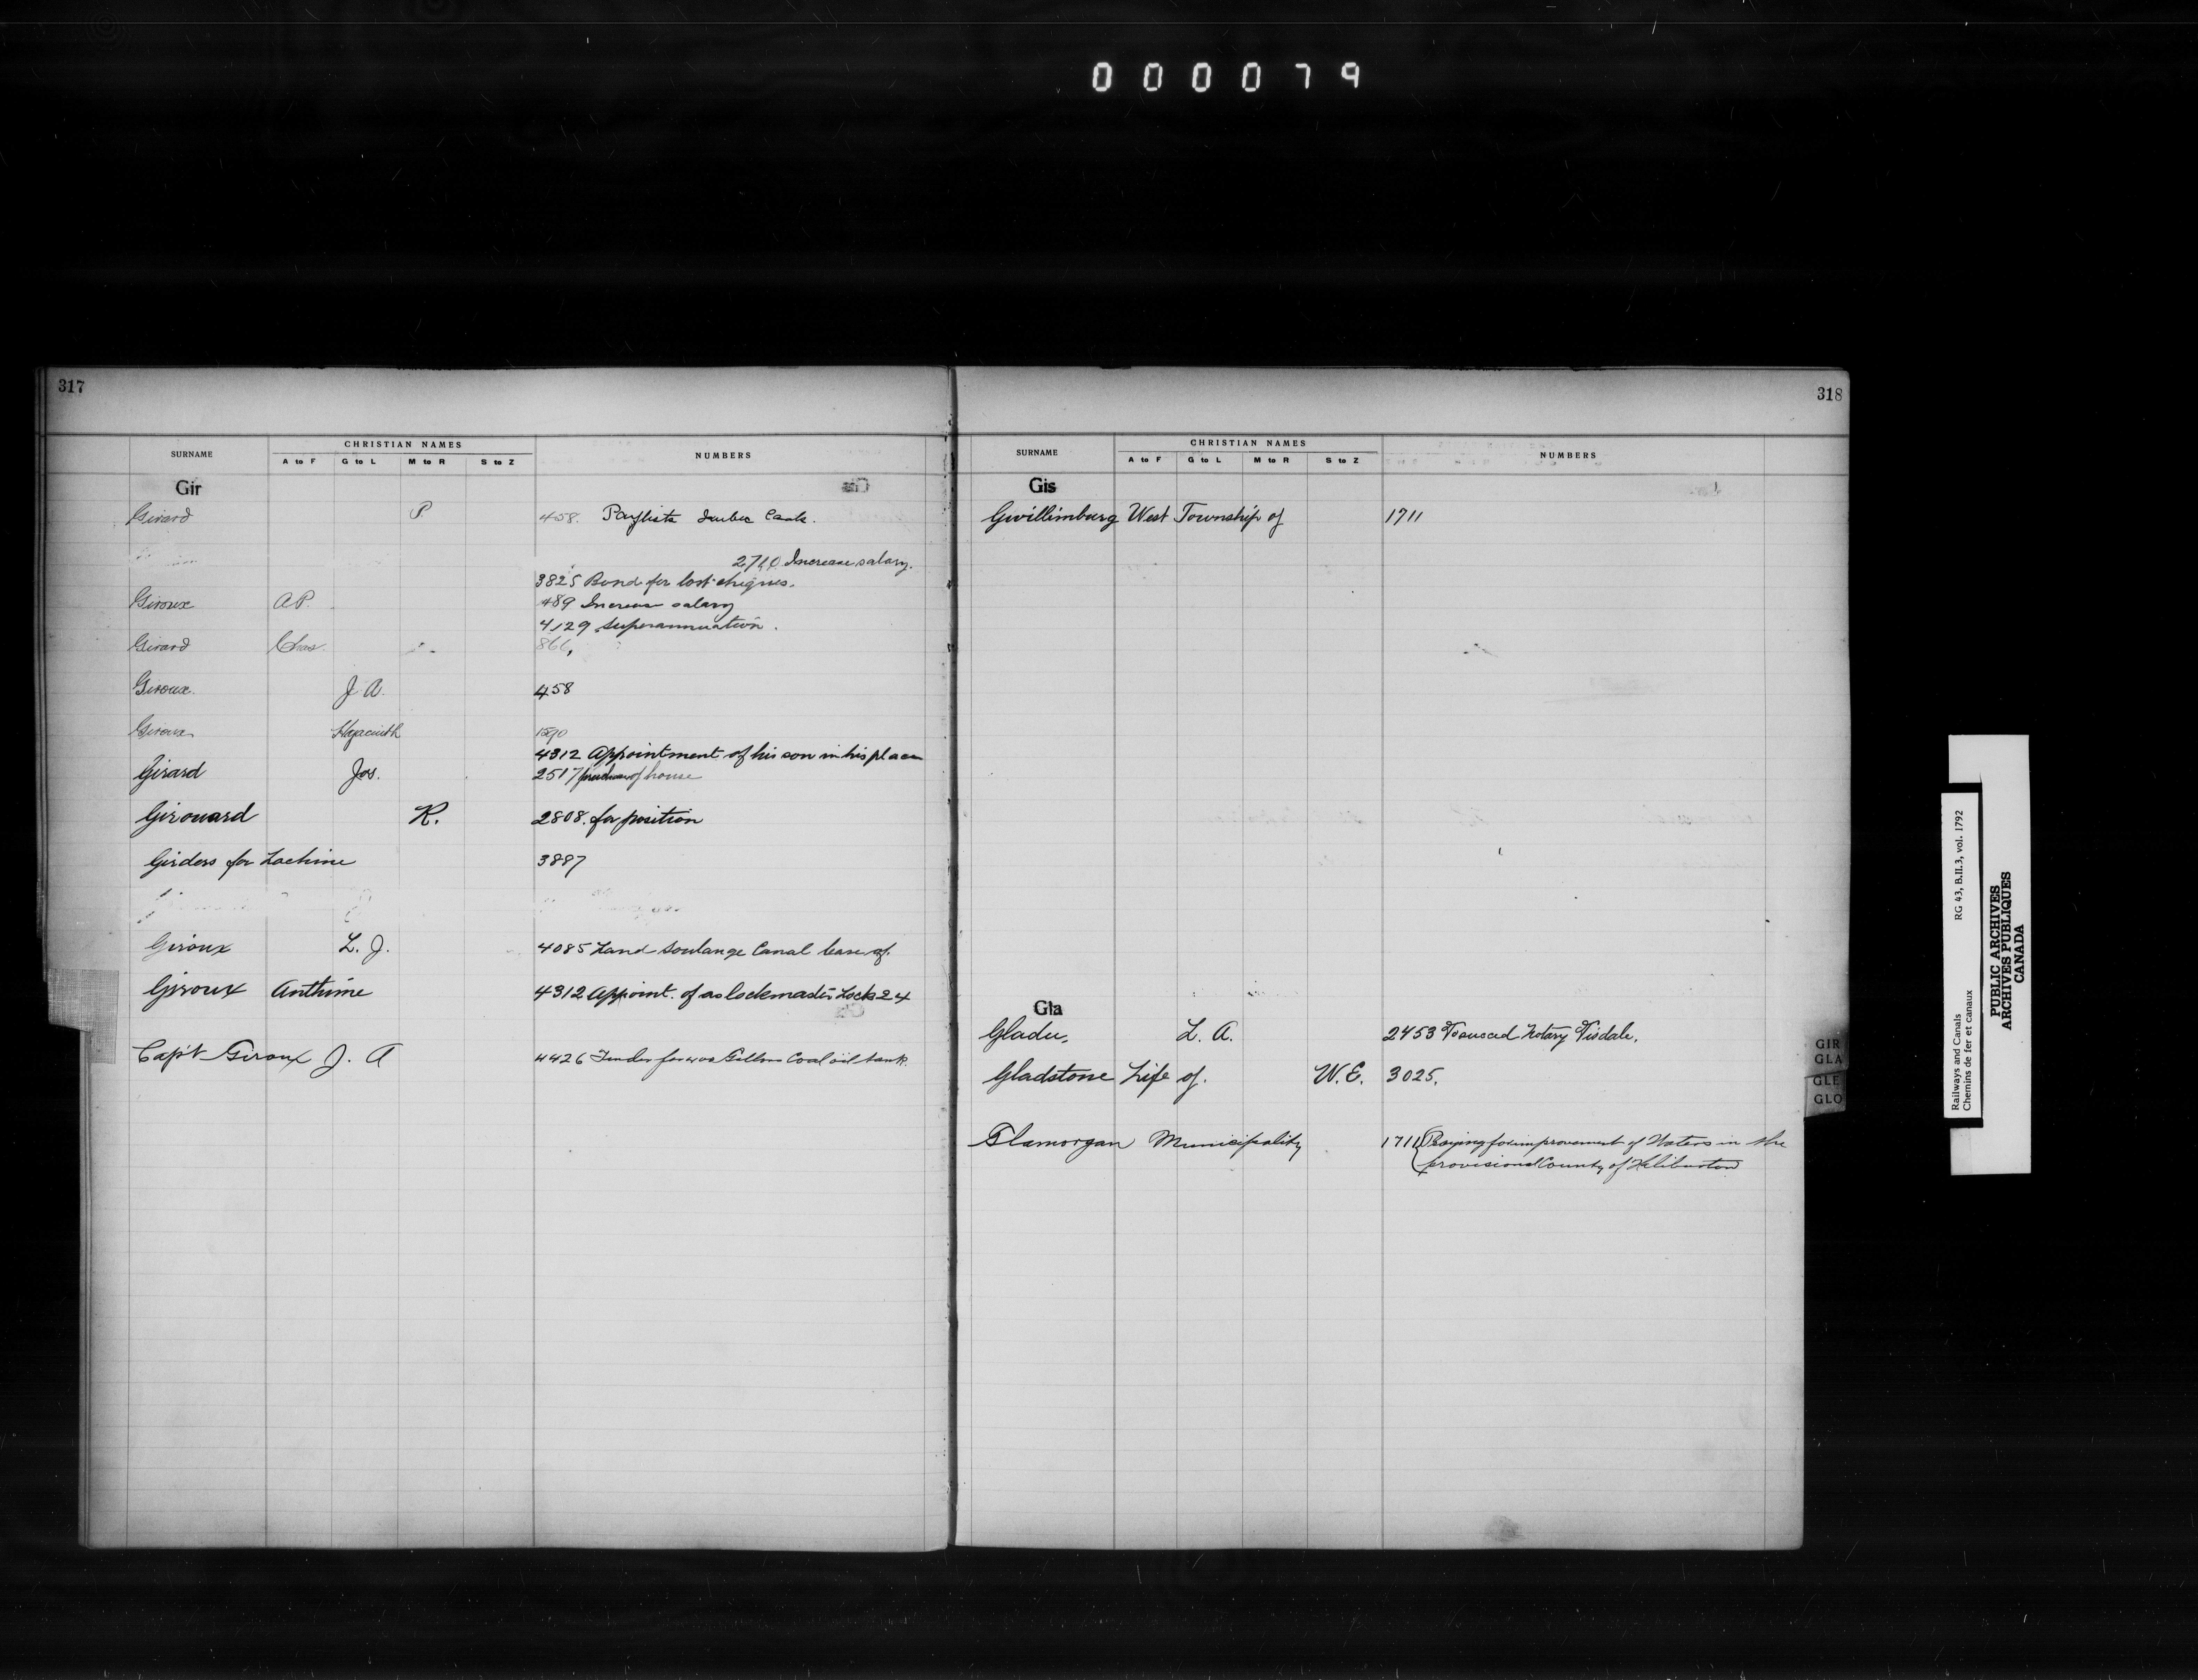 000079
317
SURNAME
CHRISTIAN NAMES
A to F G to L M to R S to Z
NUMBERS
Gir
Girard P. 458. Paylists
2710 Increase salary.
3825 Bond for lost cheques.
Giroux A P. 489 Increase salary
4129 Superannuation.
Girard Chas. 866,
Giroux J A. 458
Giroux Hyacinth 1590
4312 Appointment of his son in his place
Girard Jos. 2517 purchase of house
Girouard R. 2808. for position
Girders for Lachine 3887
Giroux L. J. 4085 Land Soulange Canal lease of.
Giroux Anthime 4312 Appoint. of as lockmaster Lock 24
Capt Giroux J. A 4426 Tender for Gallon Coal oil tank
318
SURNAME
CHRISTIAN NAMES
A to F G to L M to R S to Z
NUMBERS
Gis
Gwillimburg West Township of 1711
Gla
Gladu, L. A. 2453 Notary Tisdale.
Gladstone Life of. W. E. 3025.
Glamorgan Municipality 1711 Praying for improvement of Waters in the
provisional County of Haliburton
GIR
GLA
GLE
GLO
Railways and Canals RG 43, B.II.3, vol. 1792
Chemins de fer et canaux
PUBLIC ARCHIVES
ARCHIVES PUBLIQUES
CANADA